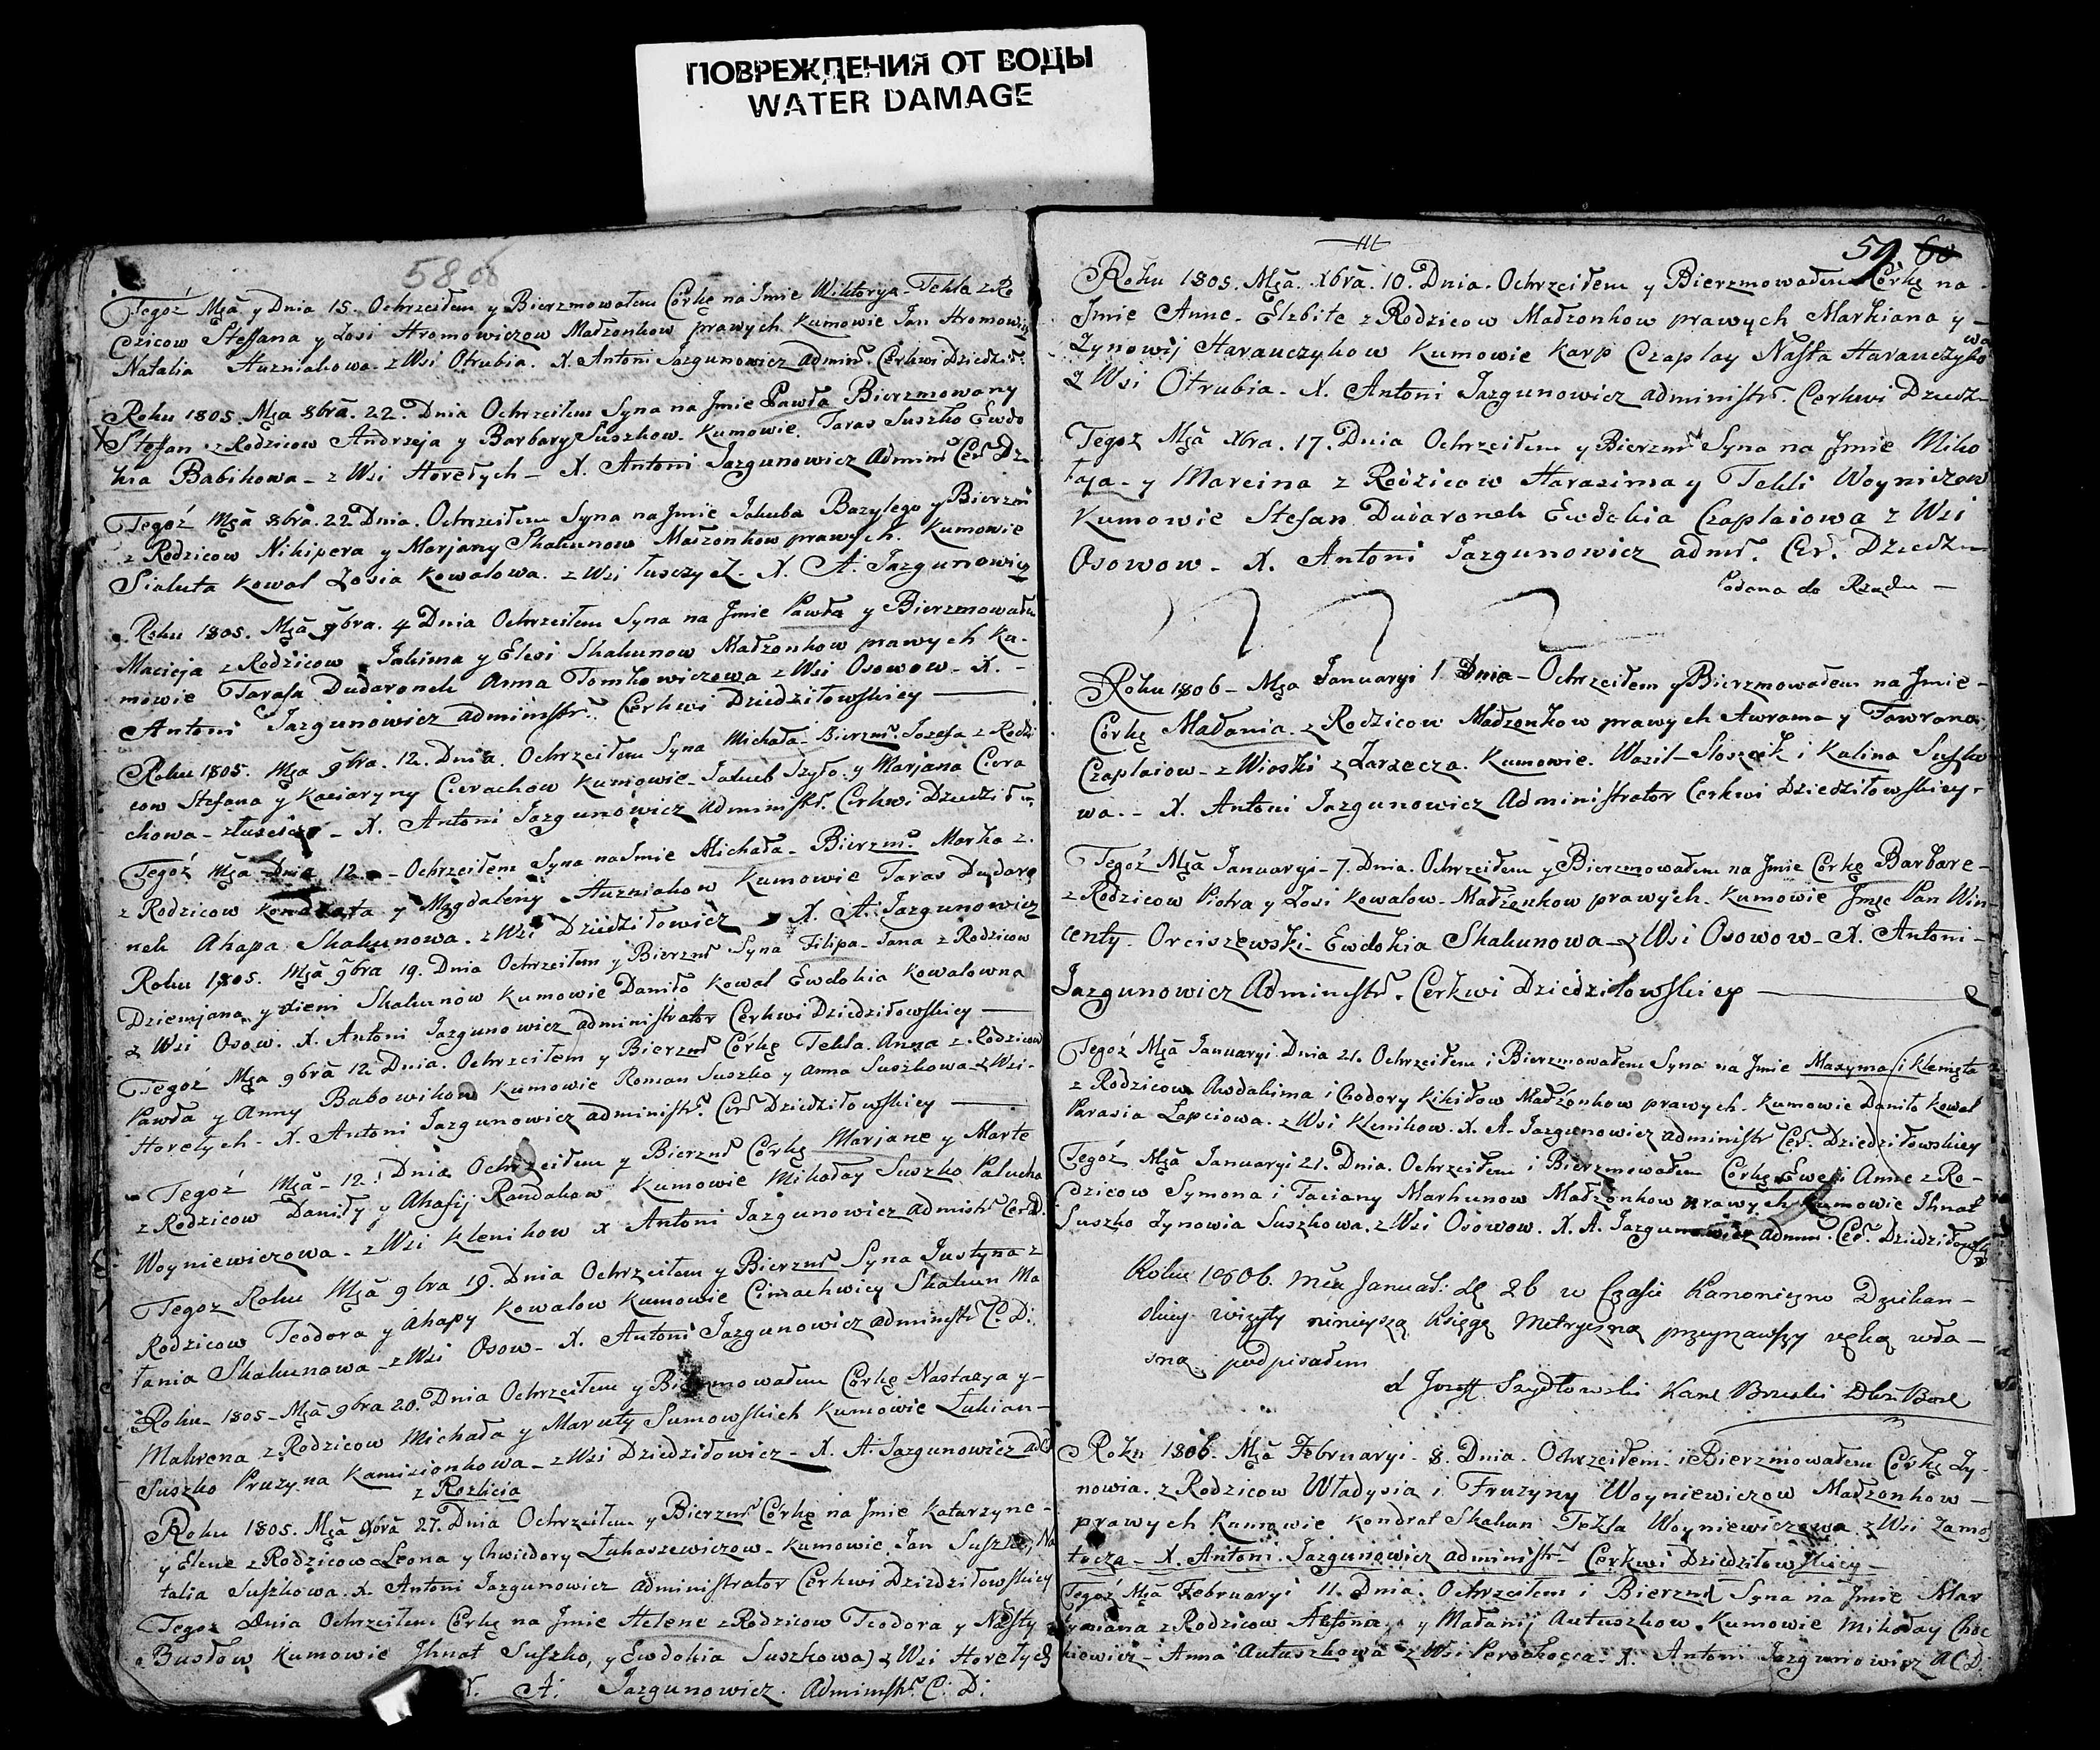 ПОВРЕЖДЕНИЯ ОТ ВОДЫ
WATER DAMAGE
58
Tegoż Mça y Dnia 15. Ochrzciłem y Bierzmowałem Corkę na Jmie Wiktorya Tekla z Ro
dzicow Steffana y Zosi Hromowiczow Małzonkow prawych Kumowie Jan Hromowicz
Natalia Huzniakowa z Wsi Otrubia. X. Antoni Jazgunowicz Admin: Cerkwi Dziedził:
Roku 1805 Mça 8bra. 22. Dnia Ochrzciłem Syna na Jmie Pawła Bierzmowany
X Stefan z Rodzicow Andrzeja y Barbary Suszkow. Kumowie. Taras Suszko Ewdo
kia Babikowa z Wsi Horełych X. Antoni Jazgunowicz Admin Cer Dz
Tegoż Mça 8bra. 22 Dnia. Ochrzciłem Syna na Jmie Jakuba Bazylego y Bierzm
z Rodzicow Nikipera y Marjany Skakunow Małzonkow prawych. Kumowie
Sialuta Kowal Zosia Kowalowa. z Wsi X. A. Jazgunowicz
Roku 1805. Mça 9bra. 4 Dnia Ochrzciłem Syna na Jmie Pawła y Bierzmowałem
Macieja z Rodzicow Jakima y Elesi Skakunow Małzonkow prawych Ku-
mowie Tarasa Dudaronek Anna Tomkowiczowa z Wsi Osowow X.
Antoni Jazgunowicz administr. Cerkwi Dziedziłowskiey
Roku 1805. Mça 9bra. 12. Dnia. Ochrzciłem Syna Michała Bierzm. Jozefa z Rodzi
cow Stefana y Kaciaryny Cierachow Kumowie Jakub Szyło y Marjana Ciera
chowa X. Antoni Jazgunowicz administr. Cerkwi Dziedził
Tegoż Mça Dnia 12 Ochrzciłem Syna na Jmie Michała Bierzm. Marka z
z Rodzicow Kondrata y Magdaleny Huzniakow Kumowie Taras Dudaro
nek Ahapa Skakunowa. z Wsi Dziedziłowicz X. A. Jazgunowicz
Roku 1805. Mça 9bra 19. Dnia Ochrzciłem y Bierzm Syna Filipa Jana z Rodzicow
Dziemjana y Xieni Skakunow Kumowie Daniło Kowal Ewdokia Kowalowna
z Wsi Osow. X. Antoni Jazgunowicz administrator Cerkwi Dziedziłowskiey
Tegoż Mça 9bra 12 Dnia. Ochrzciłem y Bierzm Corkę Tekla Anna z Rodzicow
Pawła y Anny Babowikow Kumowie Roman Suszko y Anna Suszkowa z Wsi
Horełych X. Antoni Jazgunowicz administr. Cer Dziedziłowskiey
Tegoż Mça 12. Dnia Ochrzciłem y Bierzm Corkę Marjane y Marte
z Rodzicow Daniły y Ahafij Kumowie Mikołay Suszko Palucha
Woyniewiczowa z Wsi Klenikow X Antoni Jazgunowicz Adminstr Cer D.
Tegoz Roku Mça 9bra 19. Dnia Ochrzciłem y Bierzm Syna Justyna z
Rodzicow Teodora y Ahapy Kowalow Kumowie Cimachwiey Skakun Ma
łania Skakunowa z Wsi Osow X. Antoni Jazgunowicz administr C. D:
Roku 1805 Mça 9bra 20. Dnia Ochrzciłem y Bierzmowałem Corkę Nastazya y
Mahrena z Rodzicow Michała y Maruty Sumowskich Kumowie Łukian
Suszko Pruzyna Kamizionkowa z Wsi Dziedziłowicz X. A. Jazgunowicz
Roku 1805. Mça 27. Dnia Ochrzciłem y Bierzm Corkę na Jmie Katarzyne
y Elene z Rodzicow Leona y Chwiedory Łukaszewiczow Kumowie Jan Suszko Na
talia Suszkowa. X. Antoni Jazgunowicz administrator Cerkwi Dziedziłowskiey
Tegoż Dnia Ochrzciłem Corkę na Jmie Helene z Rodzicow Teodora y Nasty
Busłow Kumowie Jhnat Suszko, y Ewdokia Suszkowa z Wsi Horełych
X. A. Jazgunowicz. Adminstr. C: D:
59 60
Roku 1805. Mça. Xbra. 10. Dnia. Ochrzciłem y Bierzmowałem Corkę na
Jmie Anne Elzbite z Rodzicow Małzonkow prawych Markiana y
Zynowij Harauczykow Kumowie Karp Czaplay Nasta Harauczyko
wa
z Wsi Otrubia X. Antoni Jazgunowicz administr. Cerkwi Dziedz
Tegoz Mça Xbra. 17. Dnia Ochrzciłem y Bierzm Syna na Jmie Miko
łaja y Marcina z Rodzicow Harasima y Tekli Woyniczow
Kumowie Stefan Dudaronek Ewdokia Czaplaiowa z Wsi
Osowow X. Antoni Jazgunowicz adm. Cer. Dziedz
Podana do Rządu
Roku 1806 Mça Januaryi 1 Dnia Ochrzciłem y Bierzmowałem na Jmie
Corkę Małania z Rodzicow Małzonkow prawych Awrama y
Czaplaiow z Wioski z Zarzecza. Kumowie. Wasil i Kalina Suszko
wa. X. Antoni Jazgunowicz Administrator Cerkwi Dziedziłowskiey
Tegoż Mça Januaryi 7. Dnia. Ochrzciłem y Bierzmowałem na Jmie Corkę Barbare
z Rodzicow Piotra y Zosi Kowalow Małzonkow prawych. Kumowie Jmc Pan Win
centy Orciszewski Ewdokia Skakunowa z Wsi Osowow X. Antoni
Jazgunowicz Administr. Cerkwi Dziedziłowskiey
Tegoż Mça Januaryi Dnia 21. Ochrzciłem i Bierzmowałem Syna na Jmie Maxyma i Klemęta
z Rodzicow Awdakima i Chodory Kikiłow Małżonkow prawych. Kumowie Daniło Kowal
Parasia Łapciowa. z Wsi Klenikow. X. A. Jazgunowicz administr Cer. Dziedziłowskiey
Tegoż Mça Januaryi 21. Dnia. Ochrzciłem i Bierzmowałem Corkę Ewę i Anne z Ro
dzicow Symona i Taciany Markunow Małzonkow prawych Kumowie Jhnat
Suszko Zynowia Suszkowa. z Wsi Osowow. X. A. Jazgunowicz admin. Cer. Dziedziłowsk
Roku 1806. Mca Januar: 26 w Czasie Kanoniczno Dziekan
skiey wizyty ninieyszą Księgę Metryczną przeyzrawszy ręką wła
sną podpisałem
X Jozeff Szydłowski Kan Brzeski
Roku 1806. Mça Februaryi 8. Dnia. Ochrzciłem i Bierzmowałem Corkę Zy
nowia z Rodzicow Władysia i Fruzyny Woyniewiczow Małzonkow
prawych Kumowie Kondrat Skakun Tekla Woyniewiczowa z Wsi Zamos
tocza X. Antoni Jazgunowicz administr Cerkwi Dziedziłowskiey
Tegoż Mça Februaryi 11. Dnia. Ochrzciłem i Bierzm Syna na Jmie Mar
tyniana z Rodzicow y Małanij Autuszkow Kumowie Mikołay Choc
kiewicz Anna Autuszkowa z Wsi X. Antoni Jazgunowicz A C D: